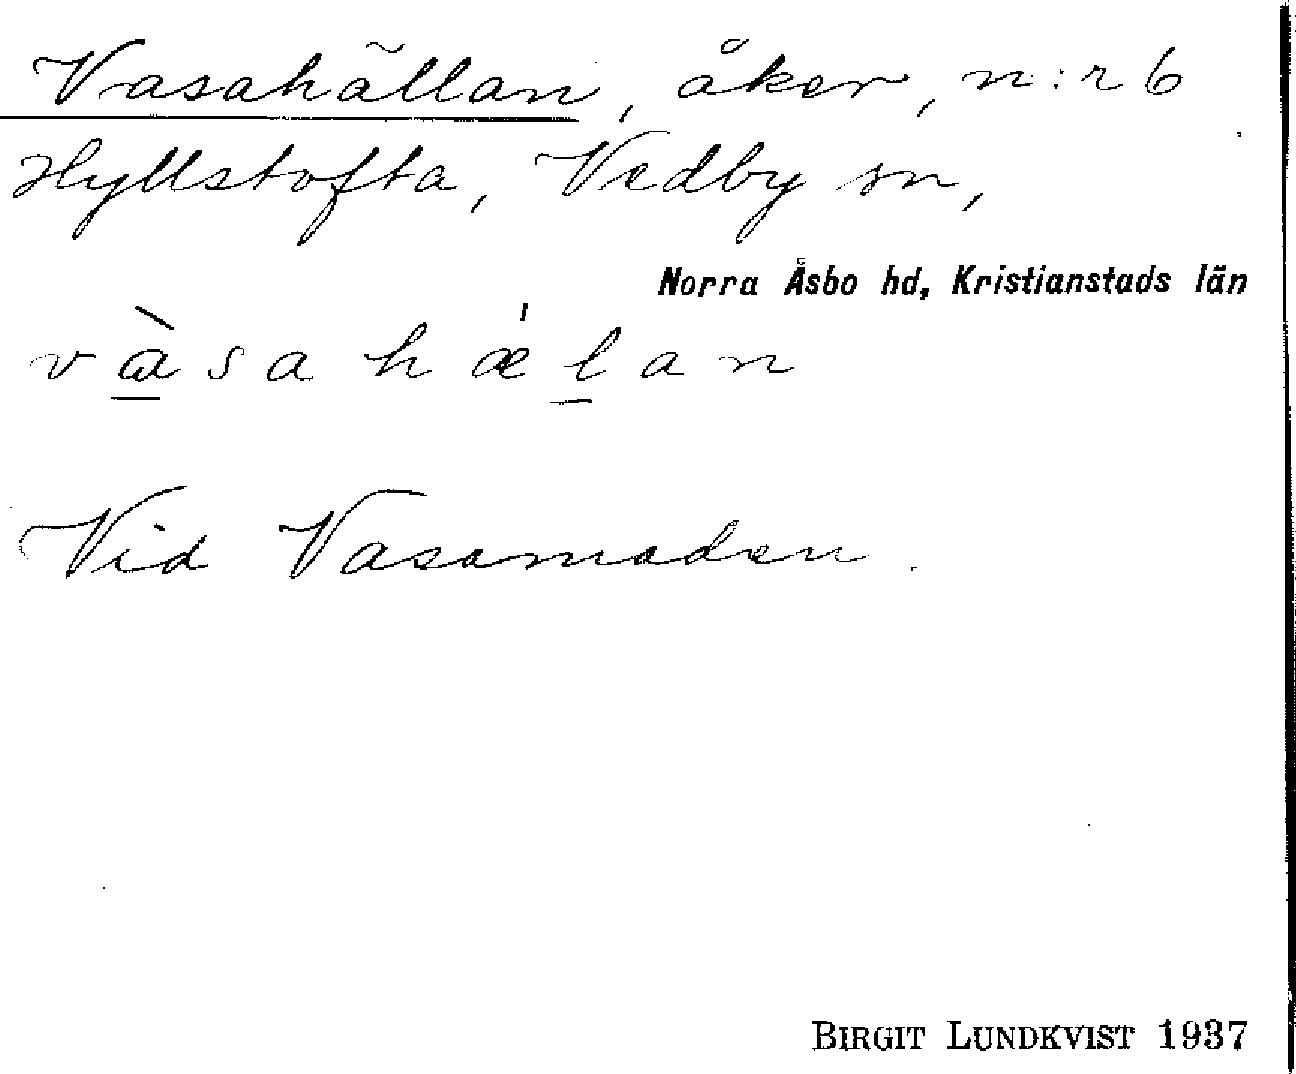 Vasahällan, åker, n:r 6
Hyllstofta, Vedby sn,
Norra Åsbo hd, Kristianstads län
v à s a h ǽ l a n
Vid Vasamaden.
BIRGIT LUNDKVIST 1937